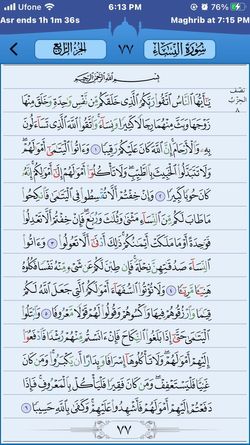 Ufone 6:13 PM 76%
Asr ends 1h 1m 36s Maghrib at 7:15 PM
سُورَةُ النِّسَاءِ ٧٧ الجُزْءُ الرَّابِعُ
نصف الحزب ٨
بِسْمِ ٱللَّهِ ٱلرَّحْمَٰنِ ٱلرَّحِيمِ
يَٰٓأَيُّهَا ٱلنَّاسُ ٱتَّقُوا۟ رَبَّكُمُ ٱلَّذِى خَلَقَكُم مِّن نَّفْسٍ وَٰحِدَةٍ وَخَلَقَ مِنْهَا
زَوْجَهَا وَبَثَّ مِنْهُمَا رِجَالًا كَثِيرًا وَنِسَآءً ۚ وَٱتَّقُوا۟ ٱللَّهَ ٱلَّذِى تَسَآءَلُونَ
بِهِۦ وَٱلْأَرْحَامَ ۚ إِنَّ ٱللَّهَ كَانَ عَلَيْكُمْ رَقِيبًا ١ وَءَاتُوا۟ ٱلْيَتَٰمَىٰٓ أَمْوَٰلَهُمْ
وَلَا تَتَبَدَّلُوا۟ ٱلْخَبِيثَ بِٱلطَّيِّبِ ۖ وَلَا تَأْكُلُوٓا۟ أَمْوَٰلَهُمْ إِلَىٰٓ أَمْوَٰلِكُمْ ۚ إِنَّهُۥ
كَانَ حُوبًا كَبِيرًا ٢ وَإِنْ خِفْتُمْ أَلَّا تُقْسِطُوا۟ فِى ٱلْيَتَٰمَىٰ فَٱنكِحُوا۟
مَا طَابَ لَكُم مِّنَ ٱلنِّسَآءِ مَثْنَىٰ وَثُلَٰثَ وَرُبَٰعَ ۖ فَإِنْ خِفْتُمْ أَلَّا تَعْدِلُوا۟
فَوَٰحِدَةً أَوْ مَا مَلَكَتْ أَيْمَٰنُكُمْ ۚ ذَٰلِكَ أَدْنَىٰٓ أَلَّا تَعُولُوا۟ ٣ وَءَاتُوا۟
ٱلنِّسَآءَ صَدُقَٰتِهِنَّ نِحْلَةً ۚ فَإِن طِبْنَ لَكُمْ عَن شَىْءٍ مِّنْهُ نَفْسًا فَكُلُوهُ
هَنِيٓـًٔا مَّرِيٓـًٔا ٤ وَلَا تُؤْتُوا۟ ٱلسُّفَهَآءَ أَمْوَٰلَكُمُ ٱلَّتِى جَعَلَ ٱللَّهُ لَكُمْ
قِيَٰمًا وَٱرْزُقُوهُمْ فِيهَا وَٱكْسُوهُمْ وَقُولُوا۟ لَهُمْ قَوْلًا مَّعْرُوفًا ٥ وَٱبْتَلُوا۟
ٱلْيَتَٰمَىٰ حَتَّىٰٓ إِذَا بَلَغُوا۟ ٱلنِّكَاحَ فَإِنْ ءَانَسْتُم مِّنْهُمْ رُشْدًا فَٱدْفَعُوٓا۟
إِلَيْهِمْ أَمْوَٰلَهُمْ ۖ وَلَا تَأْكُلُوهَآ إِسْرَافًا وَبِدَارًا أَن يَكْبَرُوا۟ ۚ وَمَن كَانَ
غَنِيًّا فَلْيَسْتَعْفِفْ ۖ وَمَن كَانَ فَقِيرًا فَلْيَأْكُلْ بِٱلْمَعْرُوفِ ۚ فَإِذَا
دَفَعْتُمْ إِلَيْهِمْ أَمْوَٰلَهُمْ فَأَشْهِدُوا۟ عَلَيْهِمْ ۚ وَكَفَىٰ بِٱللَّهِ حَسِيبًا ٦
٧٧